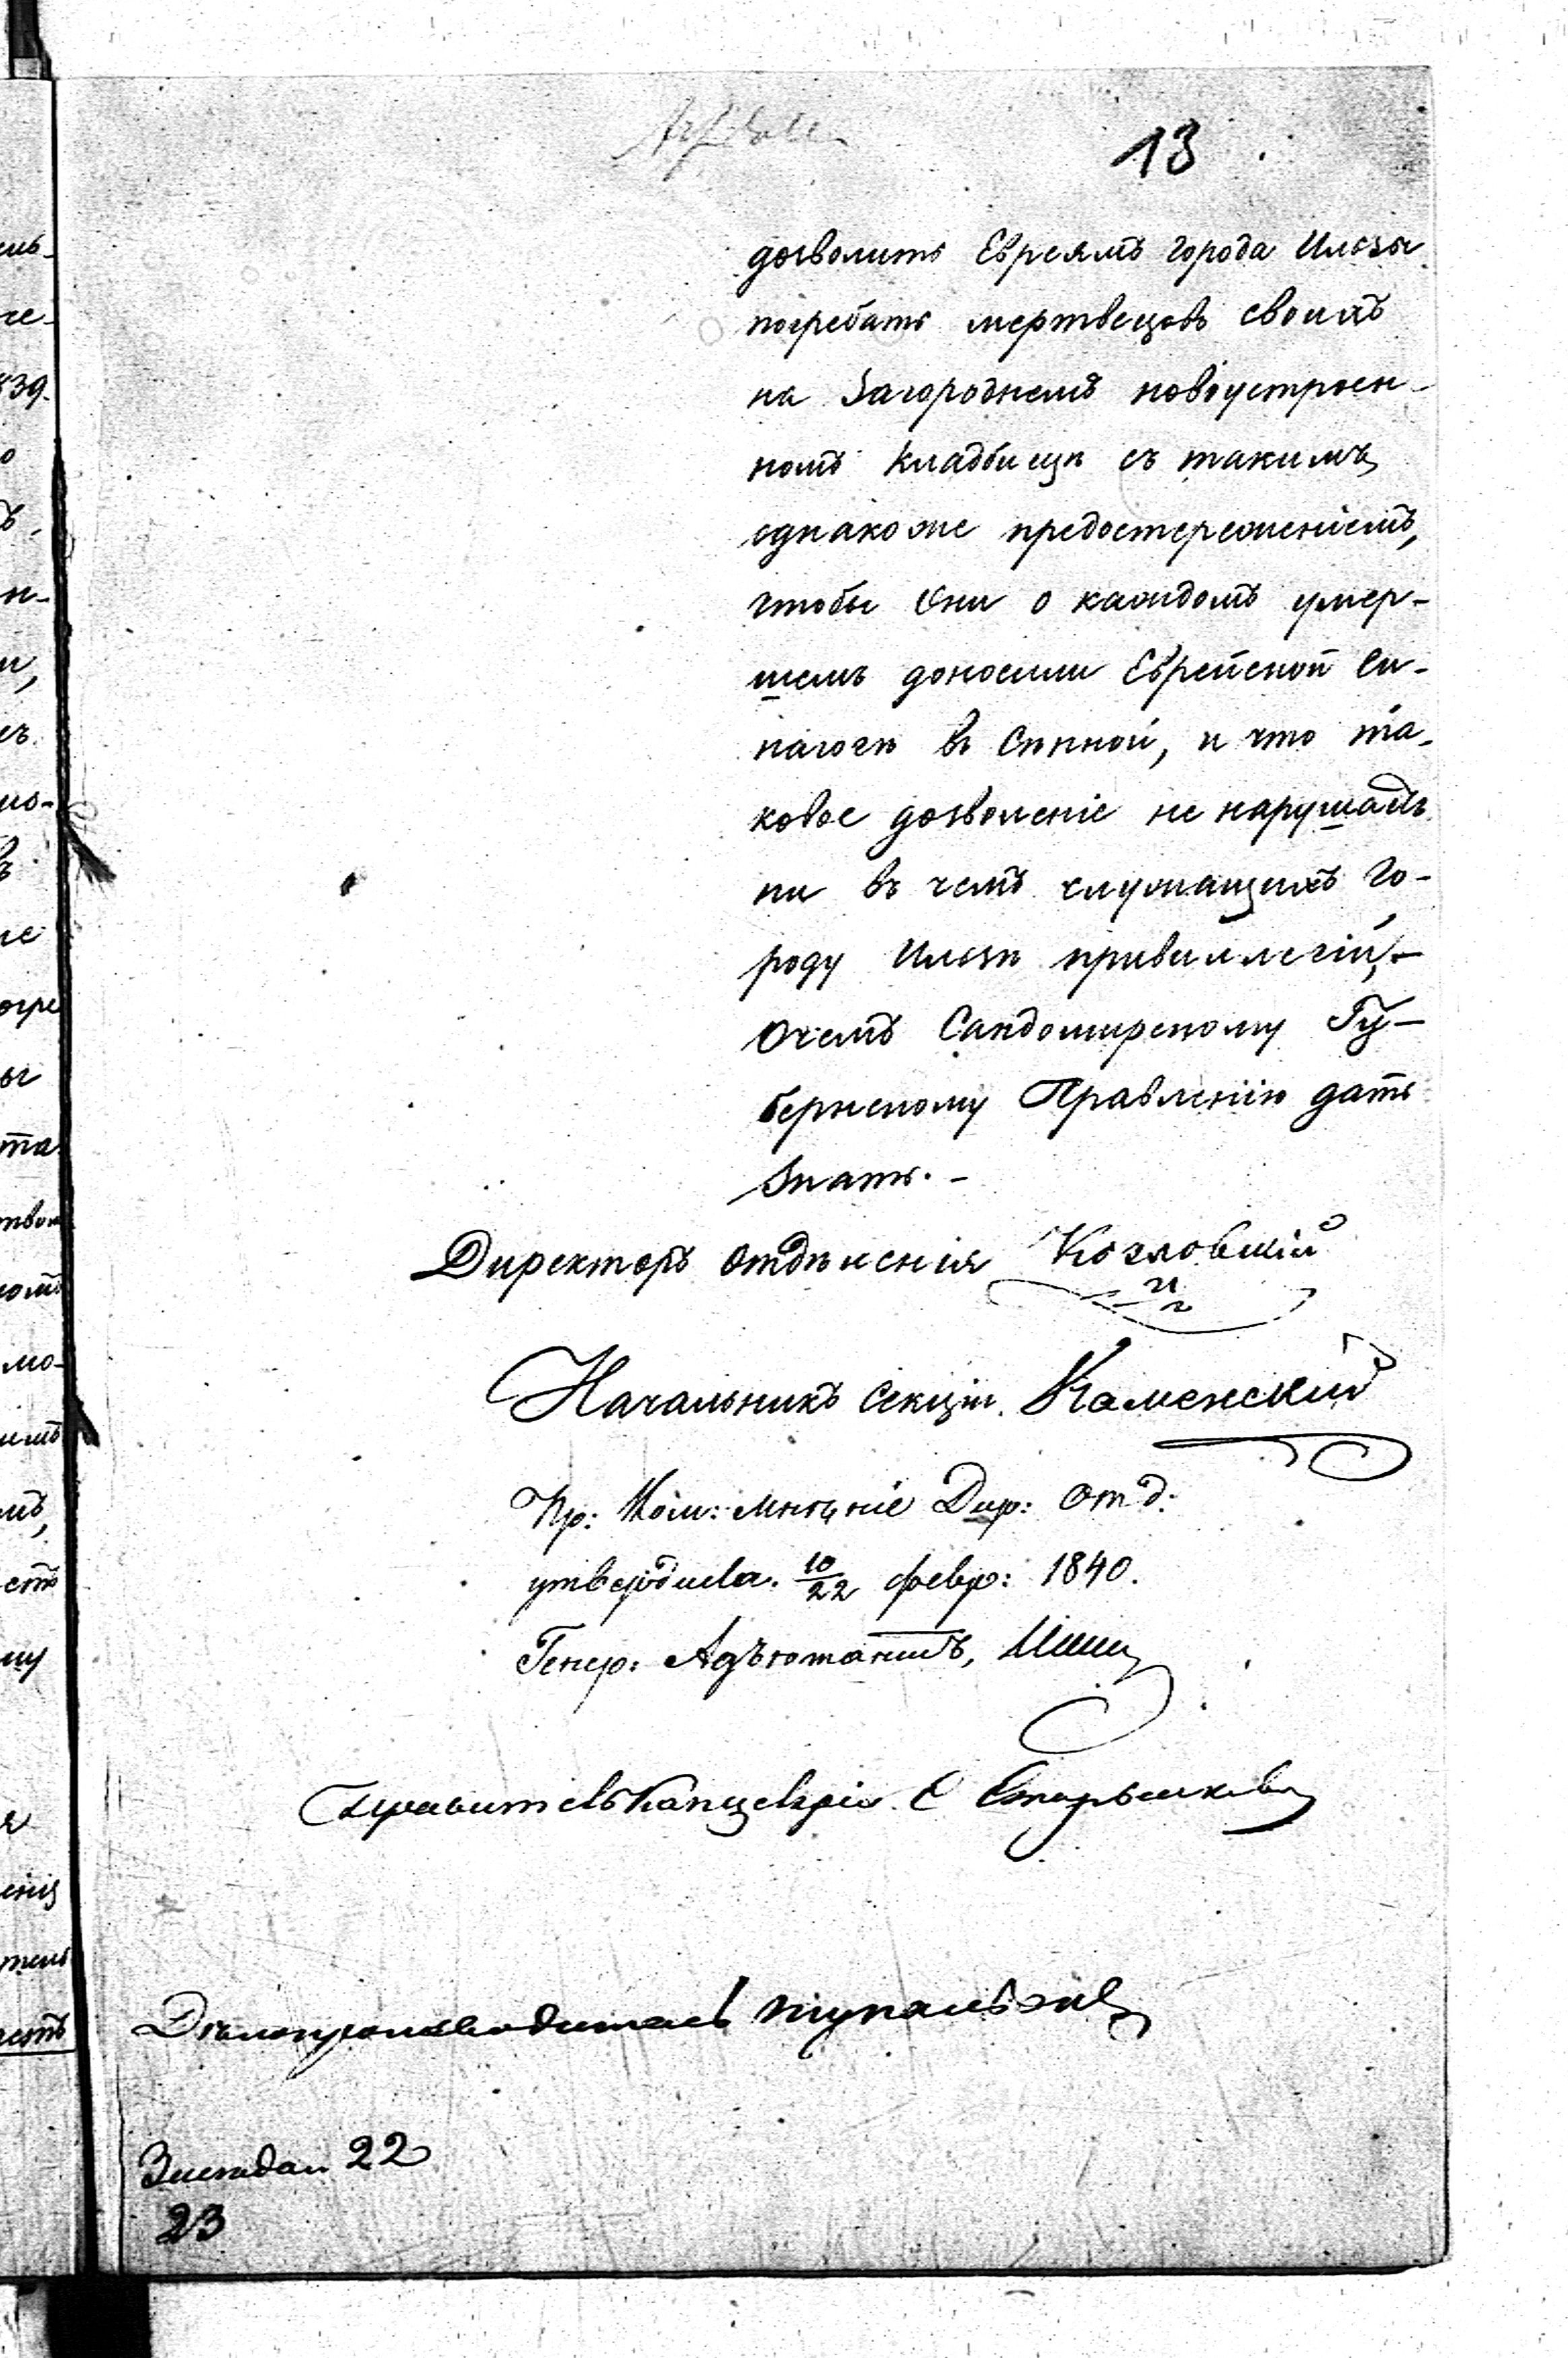 13
дозволить Евреямъ города Илжзы
погребать мертвецовъ своихъ
на загороднемъ новоустроен-
номъ кладбищѣ съ такимъ
однакоже предостереженіемъ,
чтобы они о каждомъ умер-
шемъ доносили Еврейской Си-
нагогѣ въ Сѣнной, и что та-
ковое дозволеніе не нарушаетъ
ни въ чемъ служащихъ го-
роду Илжзѣ привиллегій,-
О чемъ Сандомирскому Гу-
бернскому Правленію дать
знать.-
Директоръ отдѣленія Козловскій
Начальникъ Секціи Каменскій
Пр: Ком: мнѣніе Дир: Отд:
утвердила. 10/22 февр: 1840.
Генер: Адъютантъ,
Правитель Канцеляріи
Дѣлопроизводитель
22
23